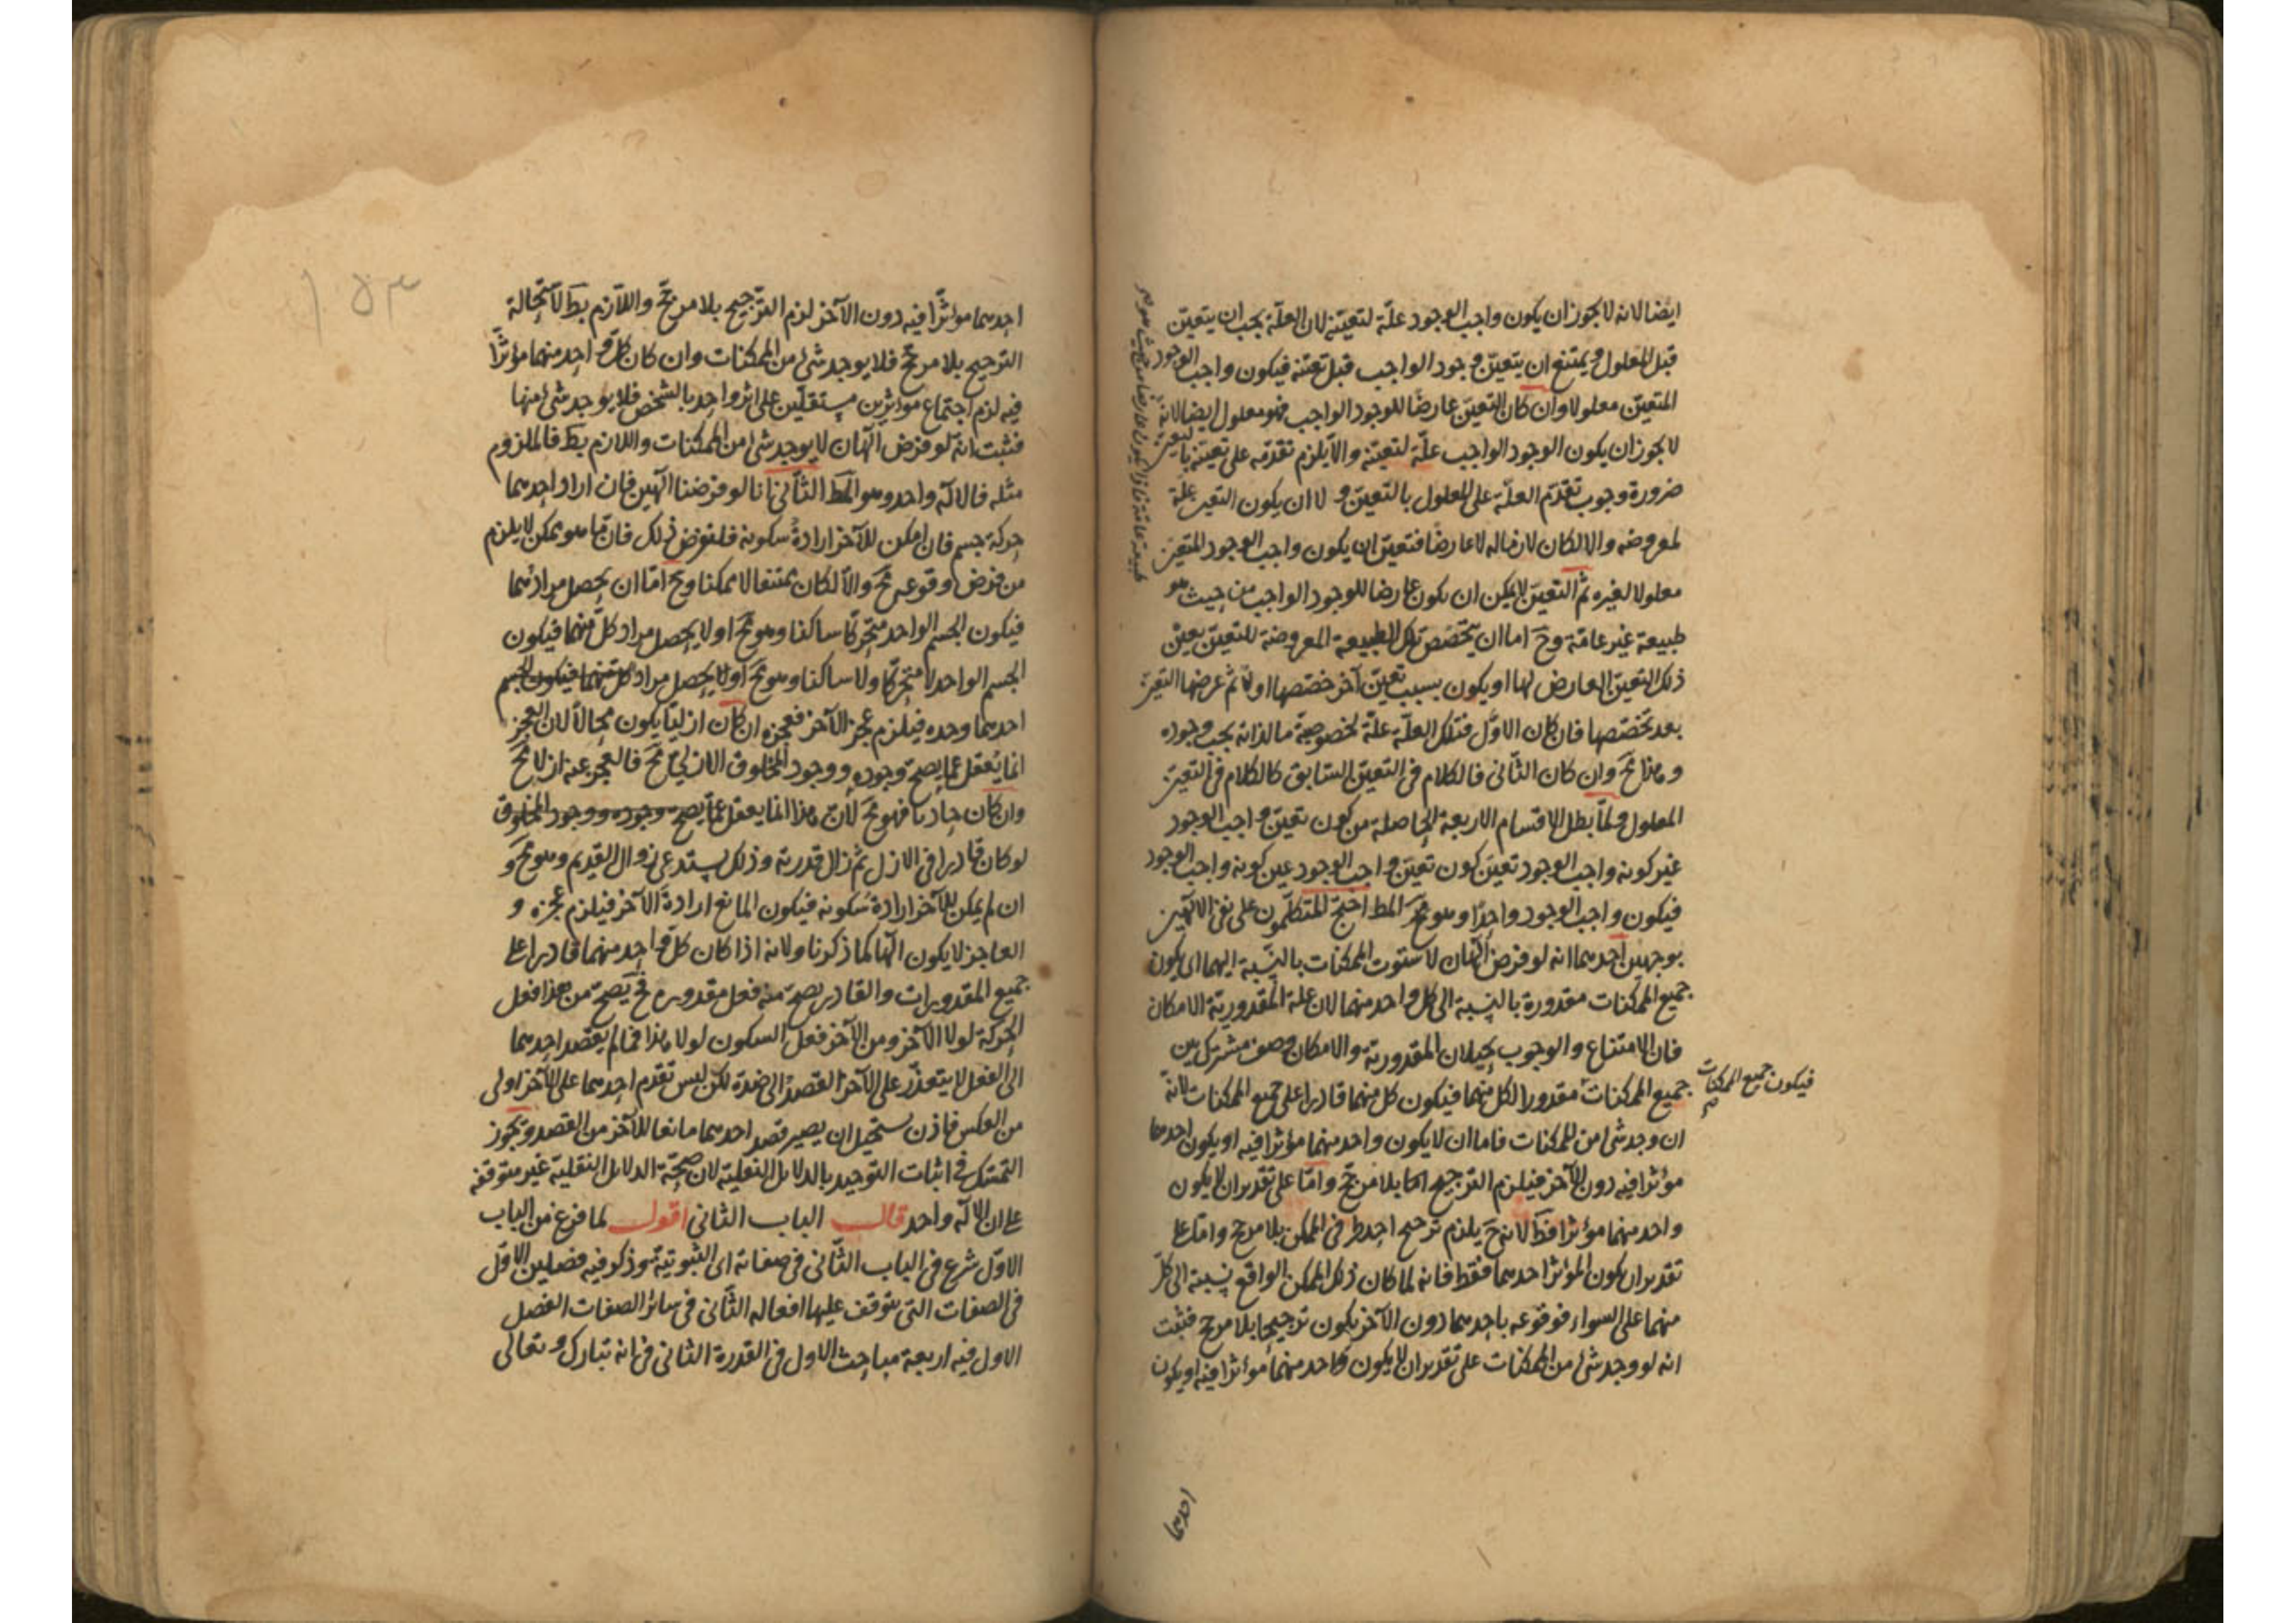 ايضا لانه لا يجوز ان يكون واجب الوجود علة لتعينه لان العلة يجب ان يتعين
قبل المعلول ويمتنع ان يتعين وجود الواجب قبل تعينه فيكون واجب الوجود
المتعين معلولا وان كان التعين عارضا للوجود الواجب فهو معلول ايضا لانه
لا يجوز ان يكون الوجود الواجب علة لتعينه والا يلزم تقدمه على تعينه بالتعين
ضرورة وجوب تقدم العلة على المعلول بالتعين و لا ان يكون التعين علة
لمعروضه والا لكان لازما له لا عارضا فتعين ان يكون واجب الوجود المتعين
معلولا لغيره ثم التعين لا يمكن ان يكون عارضا للوجود الواجب من حيث هو
طبيعة غير عامة وح اما ان يتخصص تلك الطبيعة المعروضة للتعين بعين
ذلك التعين العارض لها او يكون بسبب تعين آخر خصصها اولا ثم عرضها التعين
بعد تخصصها فان كان الاول فتلك العلة علة لخصوصية ما لذاته يجب وجوده
و هذا مح وان كان الثانى فالكلام فى التعين السابق كالكلام فى التعين
المعلول ولما بطل الاقسام الاربعة الحاصلة من كون تعين واجب الوجود
غير كونه واجب الوجود تعين كون تعين واجب الوجود عين كونه واجب الوجود
فيكون واجب الوجود واحدا وهو المط احتج المتكلمون على نفى الالهين
بوجهين احدهما انه لو فرض الهان لاستوت الممكنات بالنسبة اليهما اى يكون
جميع الممكنات مقدورة بالنسبة الى كل واحد منهما لان علة المقدورية الامكان
فان الامتناع والوجوب يحيلان المقدورية والامكان وصف مشترك بين
جميع الممكنات مقدورا لكل منهما فيكون كل منهما قادرا على جميع الممكنات لانه
فيكون جميع الممكنات
ان وجد شئ من الممكنات فاما ان لا يكون واحد منهما مؤثرا فيه او يكون احدهما
مؤثرا فيه دون الآخر فيلزم الترجيح بلا مرجح واما على تقدير ان لا يكون
واحد منهما مؤثرا فظ لانه ح يلزم ترجيح احد طرفى الممكن بلا مرجح واما على
تقدير ان يكون المؤثر احدهما فقط فانه لما كان ذلك الممكن الواقع نسبته الى كل
منهما على السواء فوقوعه باحدهما دون الآخر يكون ترجيحا بلا مرجح فثبت
انه لو وجد شئ من الممكنات على تقدير ان لا يكون واحد منهما مؤثرا فيه او يكون
احدهما
احدهما مؤثرا فيه دون الآخر لزم الترجيح بلا مرجح واللازم بط لاستحالة
الترجيح بلا مرجح فلا يوجد شئ من الممكنات وان كان كل واحد منهما مؤثرا
فيه لزم اجتماع مؤثرين مستقلين على اثر واحد بالشخص فلا يوجد شئ منها
فثبت انه لو فرض الهان لا يوجد شئ من الممكنات واللازم بط فالملزوم
مثله فالاله واحد وهو المط الثانى انا لو فرضنا الهين فان اراد احدهما
حركة جسم فان امكن للآخر ارادة سكونه فلنفرض ذلك فان ما هو ممكن لا يلزم
من فرض وقوعه مح والا لكان ممتنعا لا ممكنا وح اما ان يحصل مرادهما
فيكون الجسم الواحد متحركا ساكنا وهو مح او لا يحصل مراد كل منهما فيكون
الجسم الواحد لا متحركا ولا ساكنا وهو مح او لا يحصل مراد كل منهما فيكون الجسم
احدهما وحده فيلزم عجز الآخر فعجزه ان كان ازليا يكون محالا لان العجز
انما يعقل عما يصح وجوده ووجود المخلوق الازلى مح فالعجز عنه ازلا مح
وان كان حادثا فهو مح لان هذا انما يعقل عما يصح وجوده ووجود المخلوق
لو كان قادرا فى الازل ثم زال قدرته وذلك يستدعى زوال القديم وهو مح و
ان لم يمكن للآخر ارادة سكونه فيكون المانع ارادة الآخر فيلزم عجزه و
العاجز لا يكون الها كما ذكرنا ولانه اذا كان كل واحد منهما قادرا على
جميع المقدورات والقادر يصح منه فعل مقدوره فح يصح من هذا فعل
الحركة لولا الآخر ومن الآخر فعل السكون لولا هذا فما لم يقصد احدهما
الى الفعل لا يتعذر على الآخر القصد الى ضده لكن ليس تقدم احدهما على الآخر اولى
من العكس فاذن يستحيل ان يصير قصد احدهما مانعا للآخر من القصد ويجوز
التمسك فى اثبات التوحيد بالدلائل النقلية لان صحة الدلائل النقلية غير متوقفة
على ان الاله واحد قال الباب الثانى اقول لما فرغ من الباب
الاول شرع فى الباب الثانى فى صفاته اى الثبوتية وذكر فيه فصلين الاول
فى الصفات التى يتوقف عليها افعاله الثانى فى سائر الصفات الفصل
الاول فيه اربعة مباحث الاول فى القدرة الثانى فى انه تبارك وتعالى